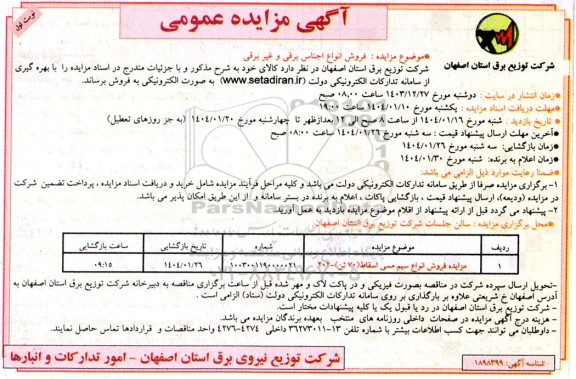 آگهی مزایده عمومی
نوبت اول
شرکت توزیع برق استان اصفهان
موضوع مزایده : فروش انواع اجناس برقی و غیر برقی
شرکت توزیع برق استان اصفهان در نظر دارد کالای خود به شرح مذکور و با جزئیات مندرج در اسناد مزایده را با بهره گیری
از سامانه تدارکات الکترونیکی دولت (www.setadiran.ir) به صورت الکترونیکی به فروش برساند.
زمان انتشار در سایت : دوشنبه مورخ ۱۴۰۳/۱۲/۲۷ ساعت ۰۸,۰۰ صبح
مهلت دریافت اسناد مزایده : یکشنبه مورخ ۱۴۰۴/۰۱/۱۰ ساعت ۱۹:۰۰
تاریخ بازدید : شنبه مورخ ۱۴۰۴/۰۱/۱۶ از ساعت ۸ صبح الی ۱۲ بعدازظهر تا چهارشنبه مورخ ۱۴۰۴/۰۱/۲۰ (به جز روزهای تعطیل)
آخرین مهلت ارسال پیشنهاد قیمت : سه شنبه مورخ ۱۴۰۴/۰۱/۲۶ ساعت ۰۸:۰۰ صبح
زمان بازگشایی: سه شنبه مورخ ۱۴۰۴/۰۱/۲۶
زمان اعلام به برنده: شنبه مورخ ۱۴۰۴/۰۱/۳۰
ضمنا رعایت موارد ذیل الزامی می باشد:
۱- برگزاری مزایده صرفا از طریق سامانه تدارکات الکترونیکی دولت می باشد و کلیه مراحل فرآیند مزایده شامل خرید و دریافت اسناد مزایده ، پرداخت تضمین شرکت
در مزایده (ودیعه)، ارسال پیشنهاد قیمت ، بازگشایی پاکات ، اعلام به برنده در بستر سامانه و از این طریق امکان پذیر می باشد.
۲- پیشنهاد می گردد قبل از ارائه پیشنهاد از اقلام موضوع مزایده بازدید به عمل آورید.
محل برگزاری مزایده : سالن جلسات شرکت توزیع برق استان اصفهان
ردیف موضوع مزایده شماره تاریخ بازگشایی ساعت بازگشایی
۱ مزایده فروش انواع سیم مسی اسقاط(۷۰ تن) ۱۴۰۴/۰۱/۲۶ ۰۹:۱۵
-تحویل ارسال سپرده شرکت در مناقصه بصورت فیزیکی و در پاکت لاک و مهر شده قبل از ساعت برگزاری مناقصه به دبیرخانه شرکت توزیع برق استان اصفهان به
آدرس اصفهان خ شریعتی علاوه بر بارگذاری بر روی سامانه تدارکات الکترونیکی دولت (ستاد) الزامی است .
- شرکت توزیع برق استان اصفهان در رد یا قبول یک یا کلیه پیشنهادات مختار است.
- هزینه درج آگهی مزایده در صفحات داخلی روزنامه های منتخب بعهده برندگان مزایده می باشد.
- داوطلبان می توانند جهت کسب اطلاعات بیشتر با شماره تلفن ۱۳-۳۶۲۷۳۰۱۱ داخلی ۴۲۷۴-۴۲۷۶ واحد مناقصات و قراردادها تماس حاصل نمایند.
شناسه آگهی: ۱۸۹۸۳۹۹
شرکت توزیع نیروی برق استان اصفهان - امور تدارکات و انبارها